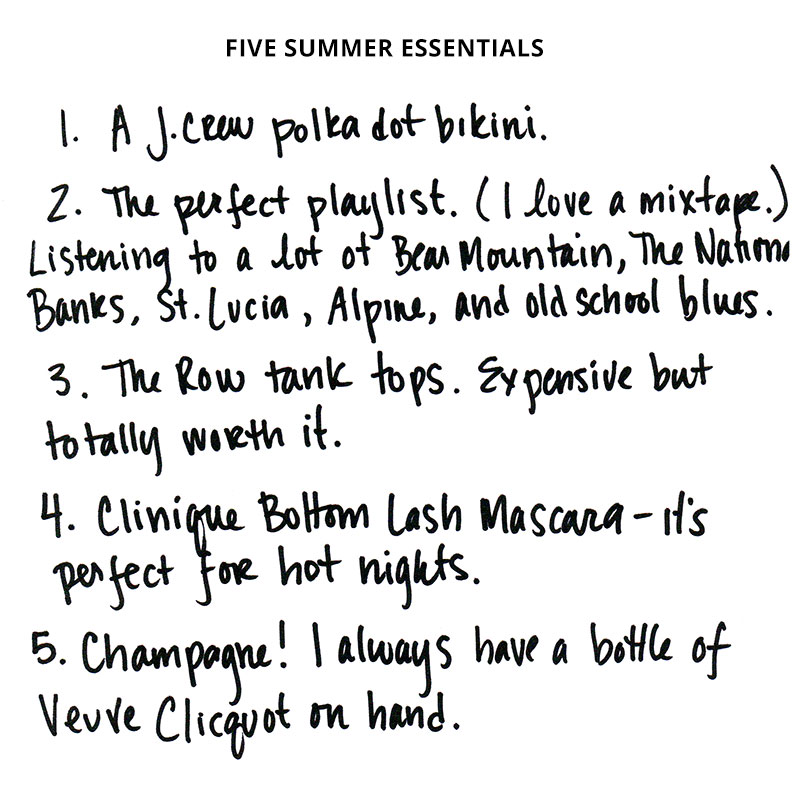 FIVE SUMMER ESSENTIALS
1. A J.Crew polka dot bikini.
2. The perfect playlist. (I love a mixtape.)
Listening to a lot of Bear Mountain, The Nation
Banks, St. Lucia, Alpine, and old school blues.
3. The Row tank tops. Expensive but
totally worth it.
4. Clinique Bottom Lash Mascara - it's
perfect for hot nights.
5. Champagne! I always have a bottle of
Veuve Clicquot on hand.